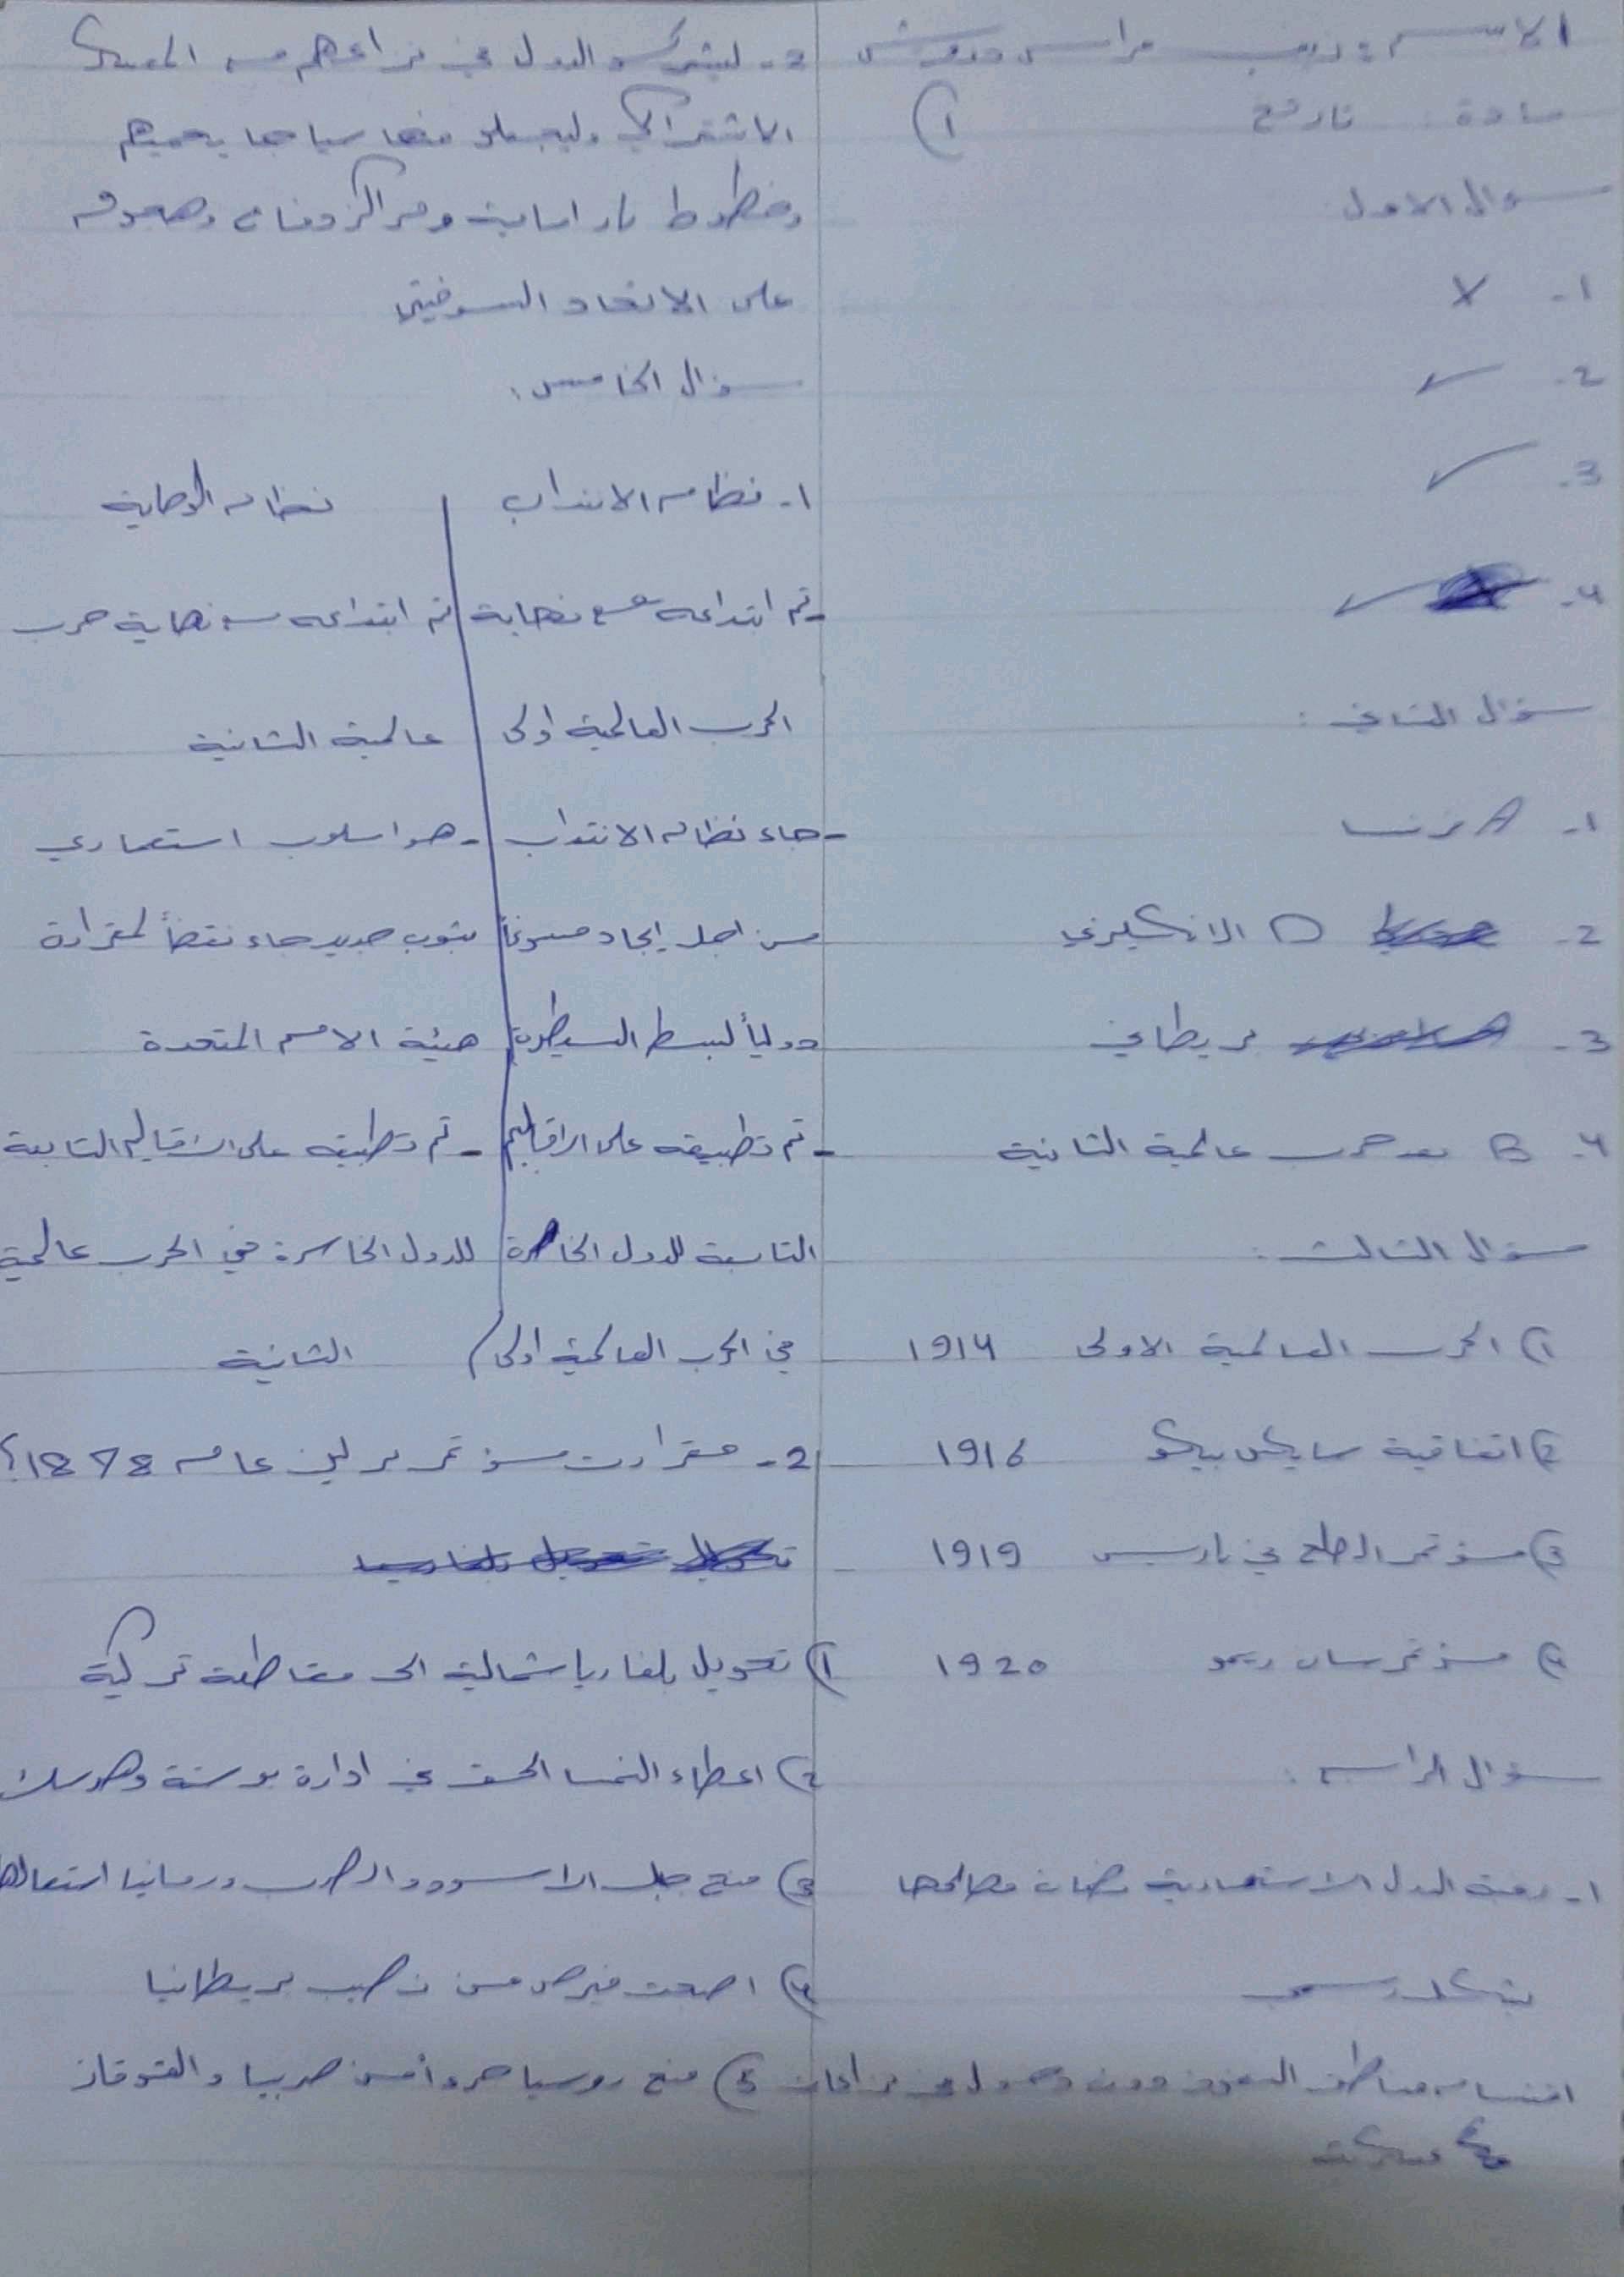 الاسم : زينب فراس درويش
مادة : تاريخ (1
سوال الاول
1- X
2- ✓
3- ✓
4- ✓
سؤال الثاني :
1- A فرنسا
2- D الانكليزي
3- بريطاني
4- B بعد حرب عالمية الثانية
سؤال الثالث :
1) الحرب العالمية الاولى 1914
2) اتفاقية سايكس بيكو 1916
3) مؤتمر الصلح في باريس 1919
4) مؤتمر سان ريمو 1920
سؤال الرابع :
1- رغبة الدول الاستعمارية ضمان مصالحها
بشكل رسمي
اقتسام مناطق النفوذ دون دخول في نزاعات
عسكرية
2- ليشركو الدول في نزاعهم مع المعسكر
الاشتراكي وليجعلو منها سياجا يحميهم
وخطوط نار امامية ومراكز دفاع وهجوم
على الاتحاد السوفيتي
سؤال الخامس :
1- نظام الانتداب
نظام الوصاية
- تم ابتداعه مع نهاية
الحرب العالمية اولى
- جاء نظام الانتداب
من اجل إيجاد مسوغاً
دولياً لبسط السيطرة
- تم تطبيقه على الاقاليم
التابعة للدول الخاسرة
في الحرب العالمية اولى
تم ابتداعه مع نهاية حرب
عالمية الثانية
- هو اسلوب استعماري
بثوب جديد جاء نقضاً لمقرارة
هيئة الامم المتحدة
- تم تطبيقه على الاقاليم التابعة
للدول الخاسرة في الحرب عالمية
الثانية
2- مقرارت مؤتمر برلين عام 1878؟
1) تحويل بلغاريا شمالية الى مقاطعة تركية
2) اعطاء النمسا الحق في ادارة بوسنة وهرسك
3) منح جبل الاسود والصرب ورمانيا استقلالها
4) اصبحت قبرص من نصيب بريطانيا
5) منح روسيا جزء أمن صربيا والقوقاز